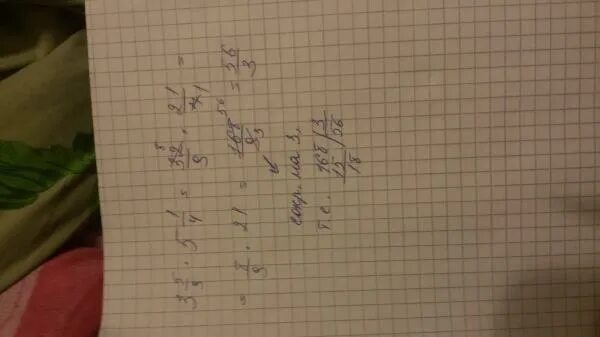 3 5/9 · 5 1/4 = 32/9 · 21/4 =
= 8/9 · 21 = 168/9 = 56/3
сокр. на 3,
т.е. 168 | 3
15 | 56
18